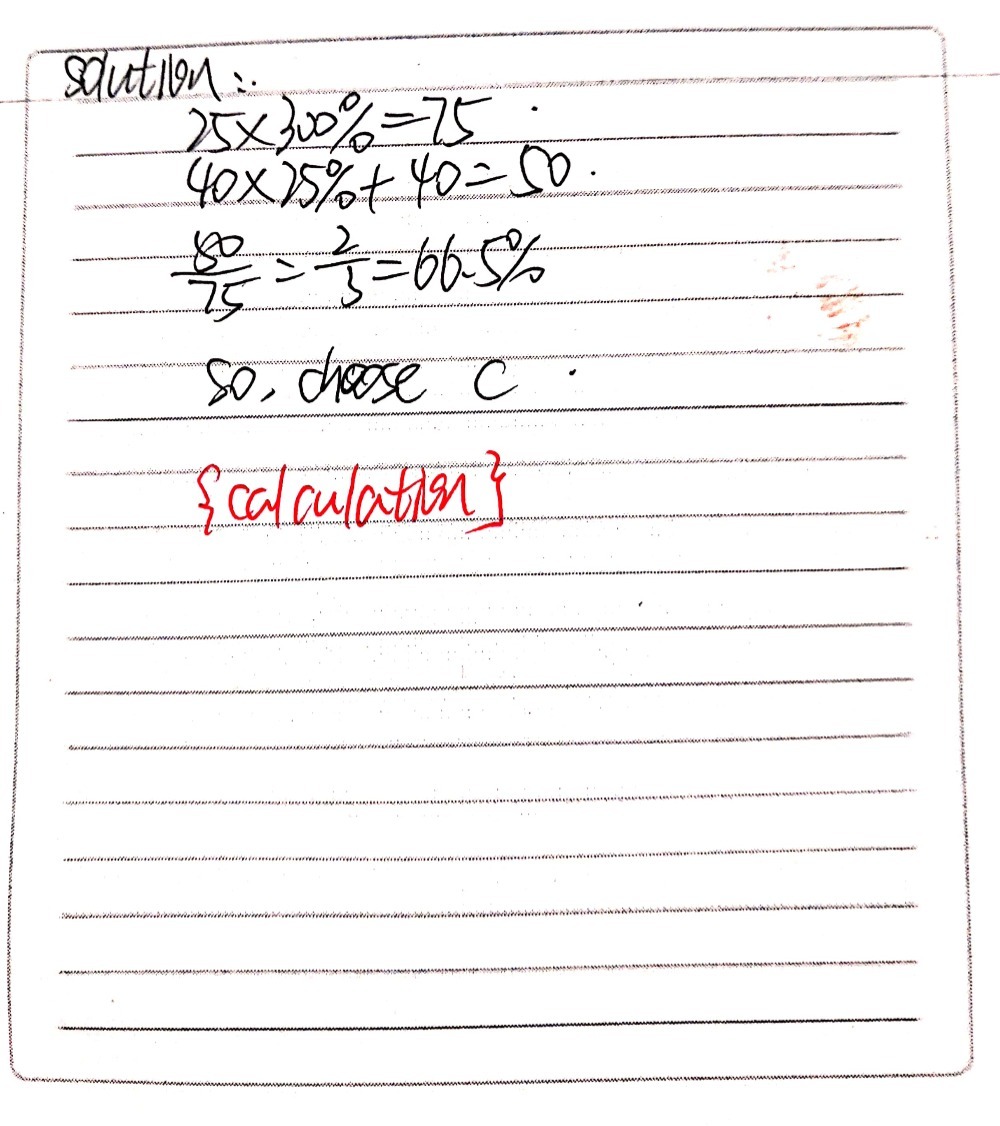 solution:
25×300%=75.
40×25%+40=50.
50/75=2/3=66.5%
so, choose C.
{calculation}